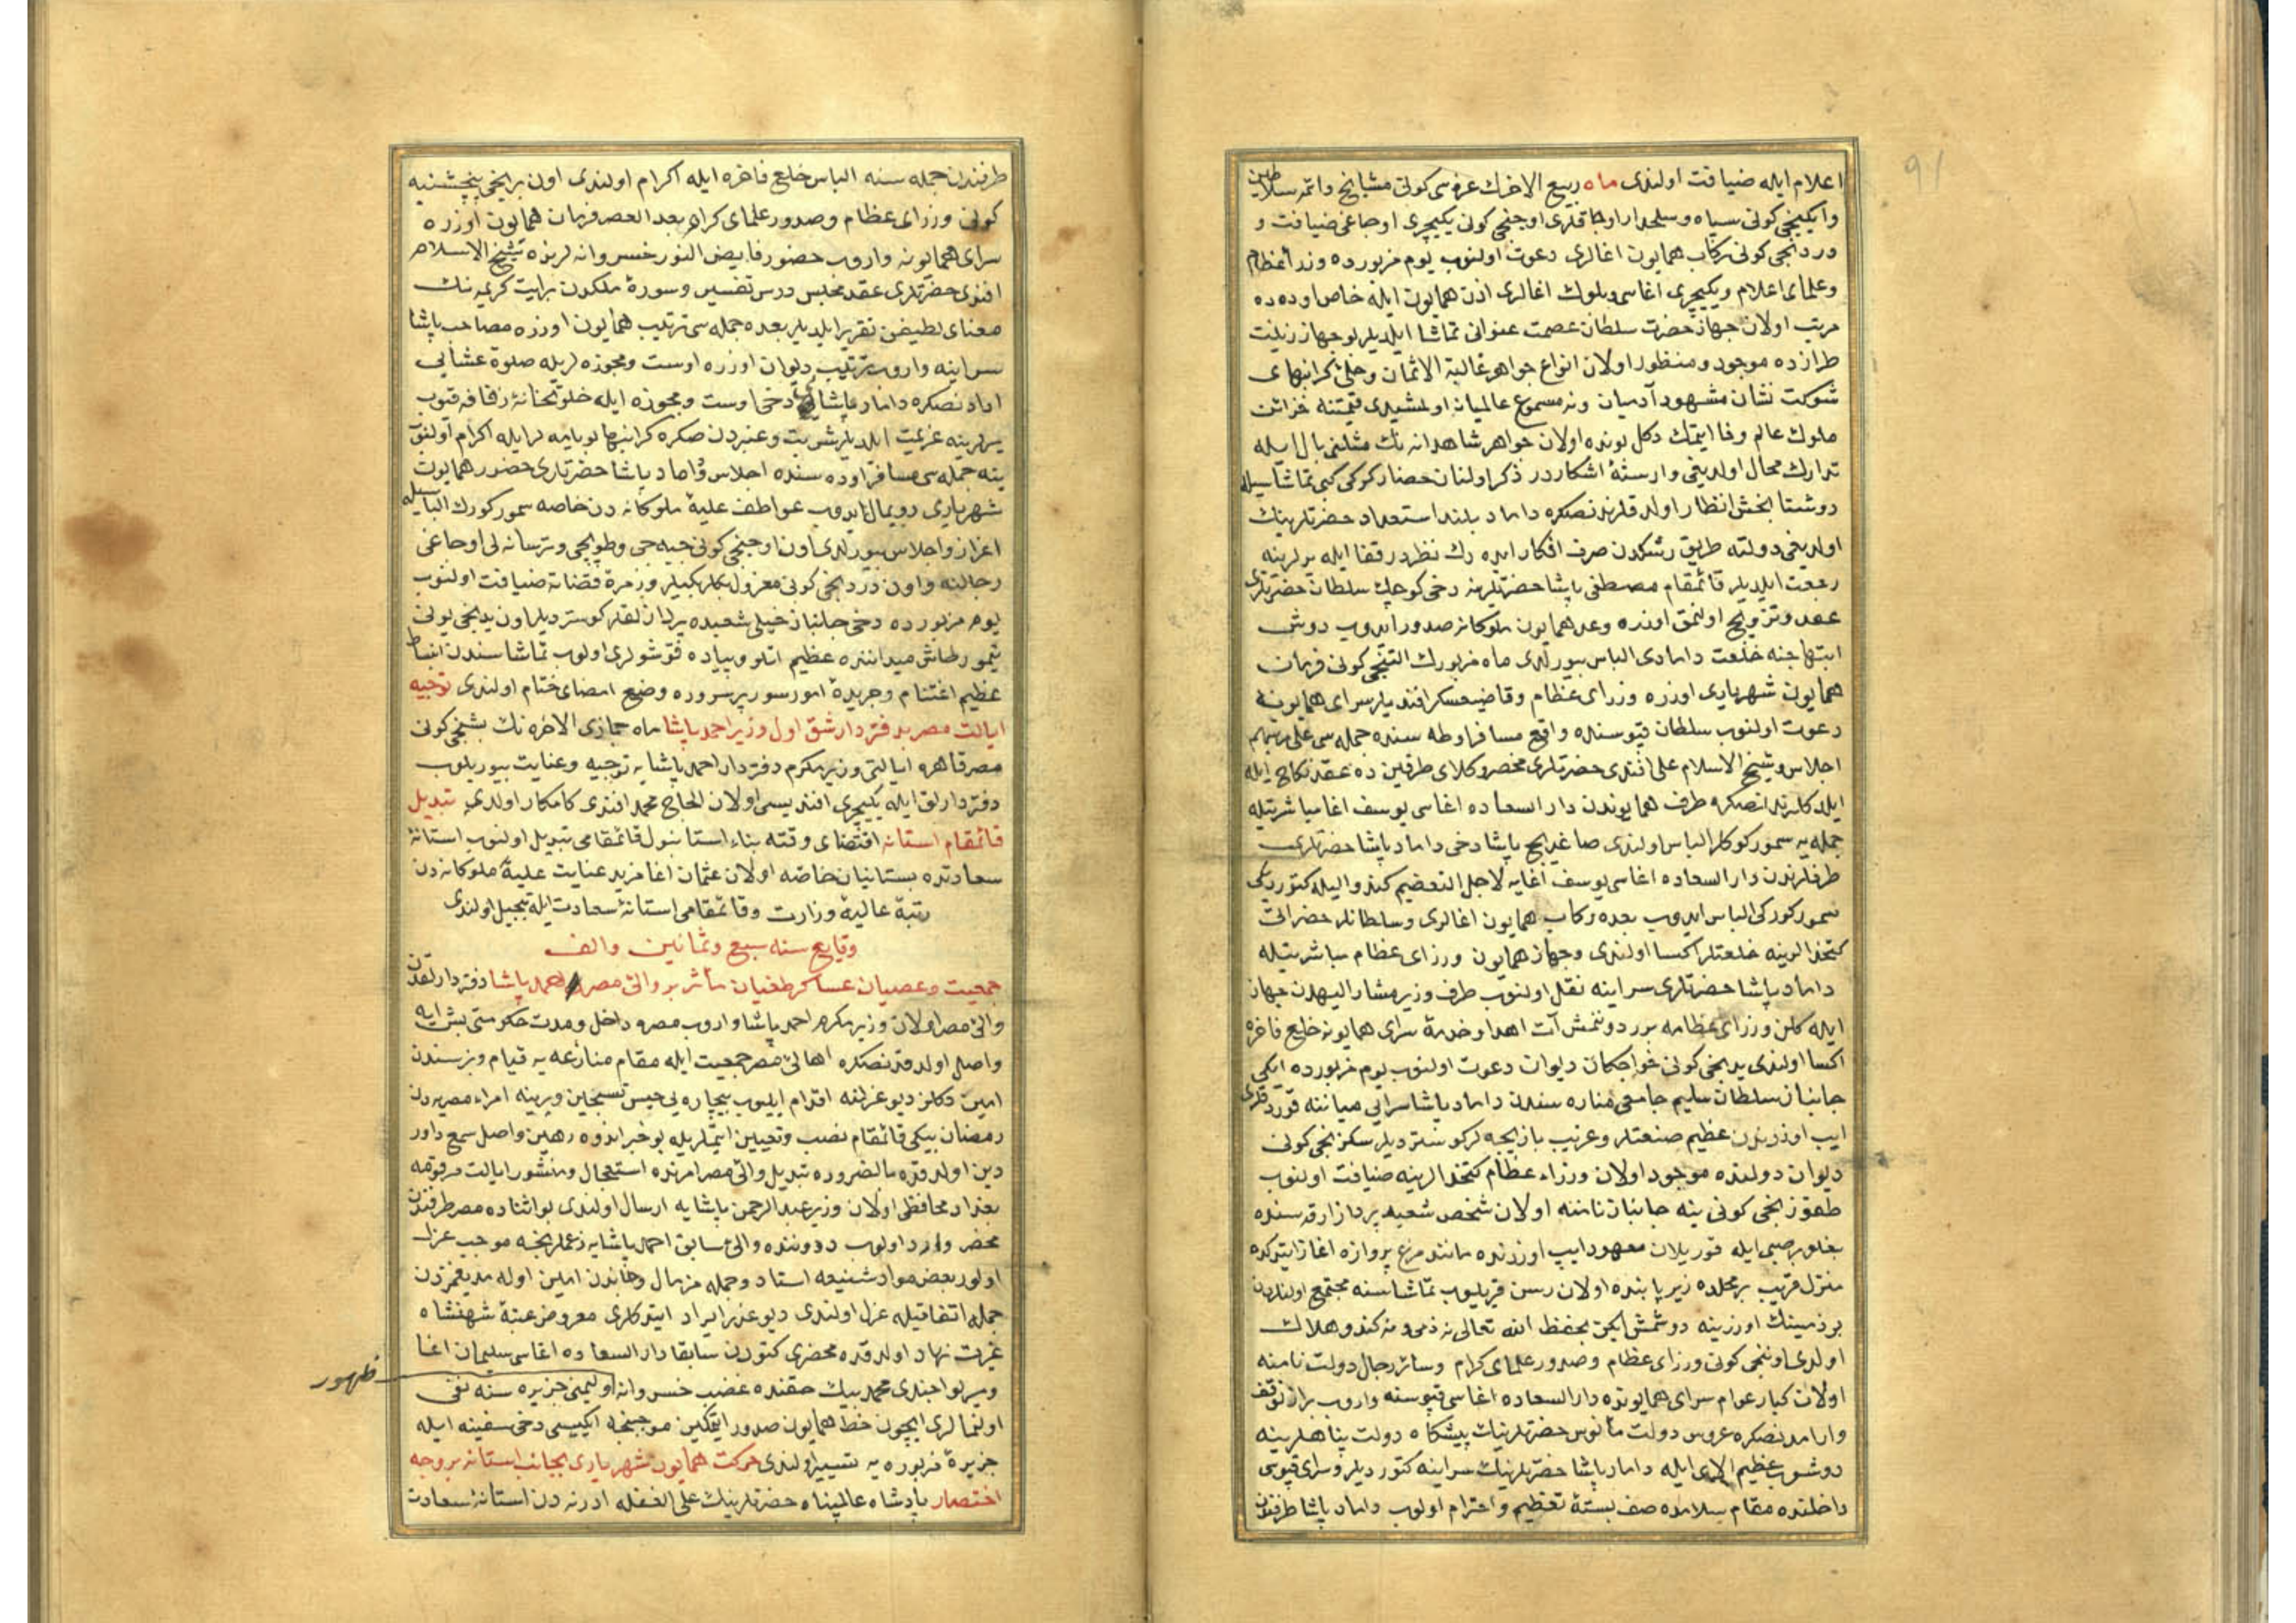 91
اعلام ایله ضیافت اولندی ماه ربیع الاخرك غره سی کونی مشایخ وائمه سلاطین
وایکنجی کونی سپاه وسلحدار اوجاقلری اوچنجی کونی یکیچری اوجاغی ضیافت و
دردنجی کونی رکاب همایون اغالری دعوت اولنوب یوم مزبورده وزرا عظام
وعلمای اعلام ویکیچری اغاسی وبلوك اغالری اذن همایون ایله خاص اوده ده
مرتب اولان جهاز حضرت سلطان عصمت عنوانی تماشا ایلدیلر بو جهاز زینت
طرازده موجود ومنظور اولان انواع جواهر غالیة الاثمان وحلئ کرانبهای
شوکت نشان مشهود آدمیان ونه مسموع عالمیان اولمشیدی قیمتنه خزائن
ملوك عالم وفا ایتمك دکل بونده اولان جواهر شاهدانه نك مثلنی بال ایله
تدارك محال اولدیغی وارسته اشکاردر ذکر اولنان حصار کوکی کبی تماشاسیله
دوشتا بخش انظار اولدقلرندنصکره داماد بلند استعداد حضرتلرینك
اولدیغی دولته طریق رشکدن صرف افکار ایده رك نظر در قفا ایله یرلرینه
رجعت ایلدیلر قائمقام مصطفی پاشا حضرتلرینه دخی کوچك سلطان حضرتلری
عقد وتزویج اولنمق اوزره وعد همایون ملوکانه صدور ایدوب دوش
ابتهاجنه خلعت دامادی الباس بیورلدی ماه مزبورك التنجی کونی فرمان
همایون شهریاری اوزره وزرای عظام وقاضیعسکر افندیلر سرای همایونه
دعوت اولنوب سلطان قپوسنده واقع مسافر اوطه سنده جمله سی علی مراتبهم
اجلاس وشیخ الاسلام علی افندی حضرتلری محضر وکلای طرفین ده عقد نکاح ایله
ایلدکلرندنصکره طرف همایوندن دار السعاده اغاسی یوسف اغا مباشرتیله
جمله یه سمور کورکلر الباس اولندی صاغدیج پاشا دخی داماد پاشا حضرتلری
طرفلرندن دار السعاده اغاسی یوسف اغایه لاجل التعظیم کندو الیله کتوردیکی
سمور کورکی الباس ایدوب بعده رکاب همایون اغالری وسلطانلر حضراتی
کتخدالرینه خلعتلر اکسا اولندی وجهاز همایون وزرای عظام مباشرتیله
داماد پاشا حضرتلری سراینه نقل اولنوب طرف وزیر مشار الیهدن جهاز
ایله کلن وزرای عظامه برر دوننمش آت اهدا وخدمه سرای همایونه خلع فاخره
اکسا اولندی یدنجی کونی خواجکان دیوان دعوت اولنوب یوم مزبورده ایکی
جانباز سلطان سلیم جامعی مناره سندن داماد پاشا سرایی میاننه قوردقلری
ایپ اوزرندن عظیم صنعتلر وغریب بازیچه لر کوستردیلر سکزنجی کونی
دیوان دولتده موجود اولان وزراء عظام کتخدالرینه ضیافت اولنوب
طقوزنجی کونی ینه جانباز نامنه اولان شخص شعبده پرداز ارقه سنده
بغلو بر صبی ایله قوریلان معهود ایپ اوزرنده مانند مرغ پروازه اغاز ایتدکده
منزل قریب بر محلده زیر پابنده اولان رسن قریلوب تماشاسنه مجتمع اولنلردن
بر ذمینك اوزرینه دوشمش ایکن بحفظ الله تعالی نه ذمی ونه کندو هلاك
اولدی اوننجی کونی وزرای عظام وصدور علمای کرام وسائر رجال دولت نامنه
اولان کبار عوام سرای همایونده دار السعاده اغاسی قپوسنه واروب براز توقف
وارامدنصکره عروس دولت مأنوس حضرتلرینك پیشکاه دولت پناهلرینه
دوشوب عظیم الای ایله داماد پاشا حضرتلرینك سراینه کتوردیلر وسرای قپوسی
داخلنده مقام سلامده صف بسته تعظیم واحترام اولوب داماد پاشا طرفندن
طرفندن جمله سنه الباس خلع فاخره ایله اکرام اولندی اون برنجی پنچشنبه
کونی وزرای عظام وصدور علمای کرام بعد العصر فرمان همایون اوزره
سرای همایونه واروب حضور فایض النور خسروانه لرنده شیخ الاسلام
افندی حضرتلری عقد مجلس درس تفسیر وسوره ملکدن بر ایت کریمه نك
معنای لطیفن تقریر ایلدیلر بعده جمله سی ترتیب همایون اوزره مصاحب پاشا
سراینه واروب ترتیب دیوان اوزره اوست ومجوزه لریله صلوة عشایی
ادادنصکره داماد پاشا دخی اوست ومجوزه ایله خلوتخانه زفافه قنوب
یرلرینه عزیمت ایلدیلر شربت وعنبردن صکره کرانبها بوغچه لر ایله اکرام اولنوب
ینه جمله سی مسافر اوده سنده اجلاس وداماد پاشا حضرتلری حضور همایون
شهریاری رویمال ایدوب عواطف علیه ملوکانه دن خاصه سمور کورك الباسیله
اعزاز واجلاس بیورلدی اون اوچنجی کونی جبه جی وطوپچی وترسانه لی اوجاغی
رجالنه واون دردنجی کونی معزول بکلربکیلر وزمره قضاته ضیافت اولنوب
یوم مزبورده دخی جانباز خیلی شعبده پردازلقلر کوستردیلر اون یدنجی یولی
تیمورطاش میداننده عظیم اتلو وپیاده قوشولری اولوب تماشاسندن انبساط
عظیم اغتنام وجریده امور سور پرسروره وضع امضای ختام اولندی توجیه
ایالت مصر بدفتردار شق اول وزیر احمد پاشا ماه جمازی الاخره نك بشنجی کونی
مصر قاهره ایالتی وزیر مکرم دفتردار احمد پاشایه توجیه وعنایت بیوریلوب
دفتردارلق ایله یکیچری افندیسی اولان الحاج محمد افندی کامکار اولدی تبدیل
قائمقام استانه اقتضای وقته بناء استانبول قائمقامی تبدیل اولنوب استانه
سعادتده بستانیان خاصه اولان عثمان اغا مزید عنایت علیه ملوکانه دن
رتبه عالیه وزارت وقائمقامی استانه سعادت ایله تبجیل اولندی
وقایع سنه سبع وثمانین والف
جمعیت وعصیان عساکر طغیان مأثر بر والئ مصر احمد پاشا دفتردارلقدن
والئ مصر اولان وزیر مکرم احمد پاشا واروب مصره داخل ومدت حکومتی بش ایه
واصل اولدقدنصکره اهالئ مصر جمعیت ایله مقام منازعه یه قیام وبز سندن
امین دکلز دیو عزلنه اقدام ایلیوب بیچاره یی حبس تسجین ویرینه امراء مصریه دن
رمضان بیکی قائمقام نصب وتعیین ایتملریله بو خبر اندوه رهین واصل سمع داور
دین اولدقده بالضروره تبدیل والئ مصر امرنده استعجال ومنشور ایالت مرقومه
بغداد محافظی اولان وزیر عبد الرحمن پاشایه ارسال اولندی بو اثناده مصر طرفندن
محضر وارد اولوب دروننده والئ سابق احمد پاشایه زعملرنجه موجب عزل
اولور بعض مواد شنیعه اسناد وجمله مز مال وجاندن امین اوله مدیغمزدن
جمله اتفاقیله عزل اولندی دیو عذر ایراد ایتدکلری معروض عتبه شهنشاه
غیرت نهاد اولدقده محضری کتورن سابقا دار السعاده اغاسی سلیمان اغا
ظهور
ومیرلوا جندی محمد بیك حقنده غضب خسروانه اولیمنی جزیره سنه نفی
اولنمالری ایچون خط همایون صدور ایتمکین موجبنجه ایکیسی دخی سفینه ایله
جزیره مزبوره یه تسییر اولندی حرکت همایون شهریاری بجانب استانه بر وجه
اختصار پادشاه عالمپناه حضرتلرینك علی الغفله ادرنه دن استانه سعادت